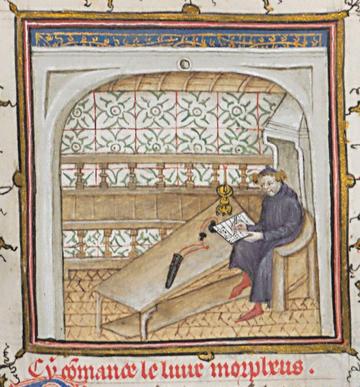 Cy cõmance le liure morpheus .